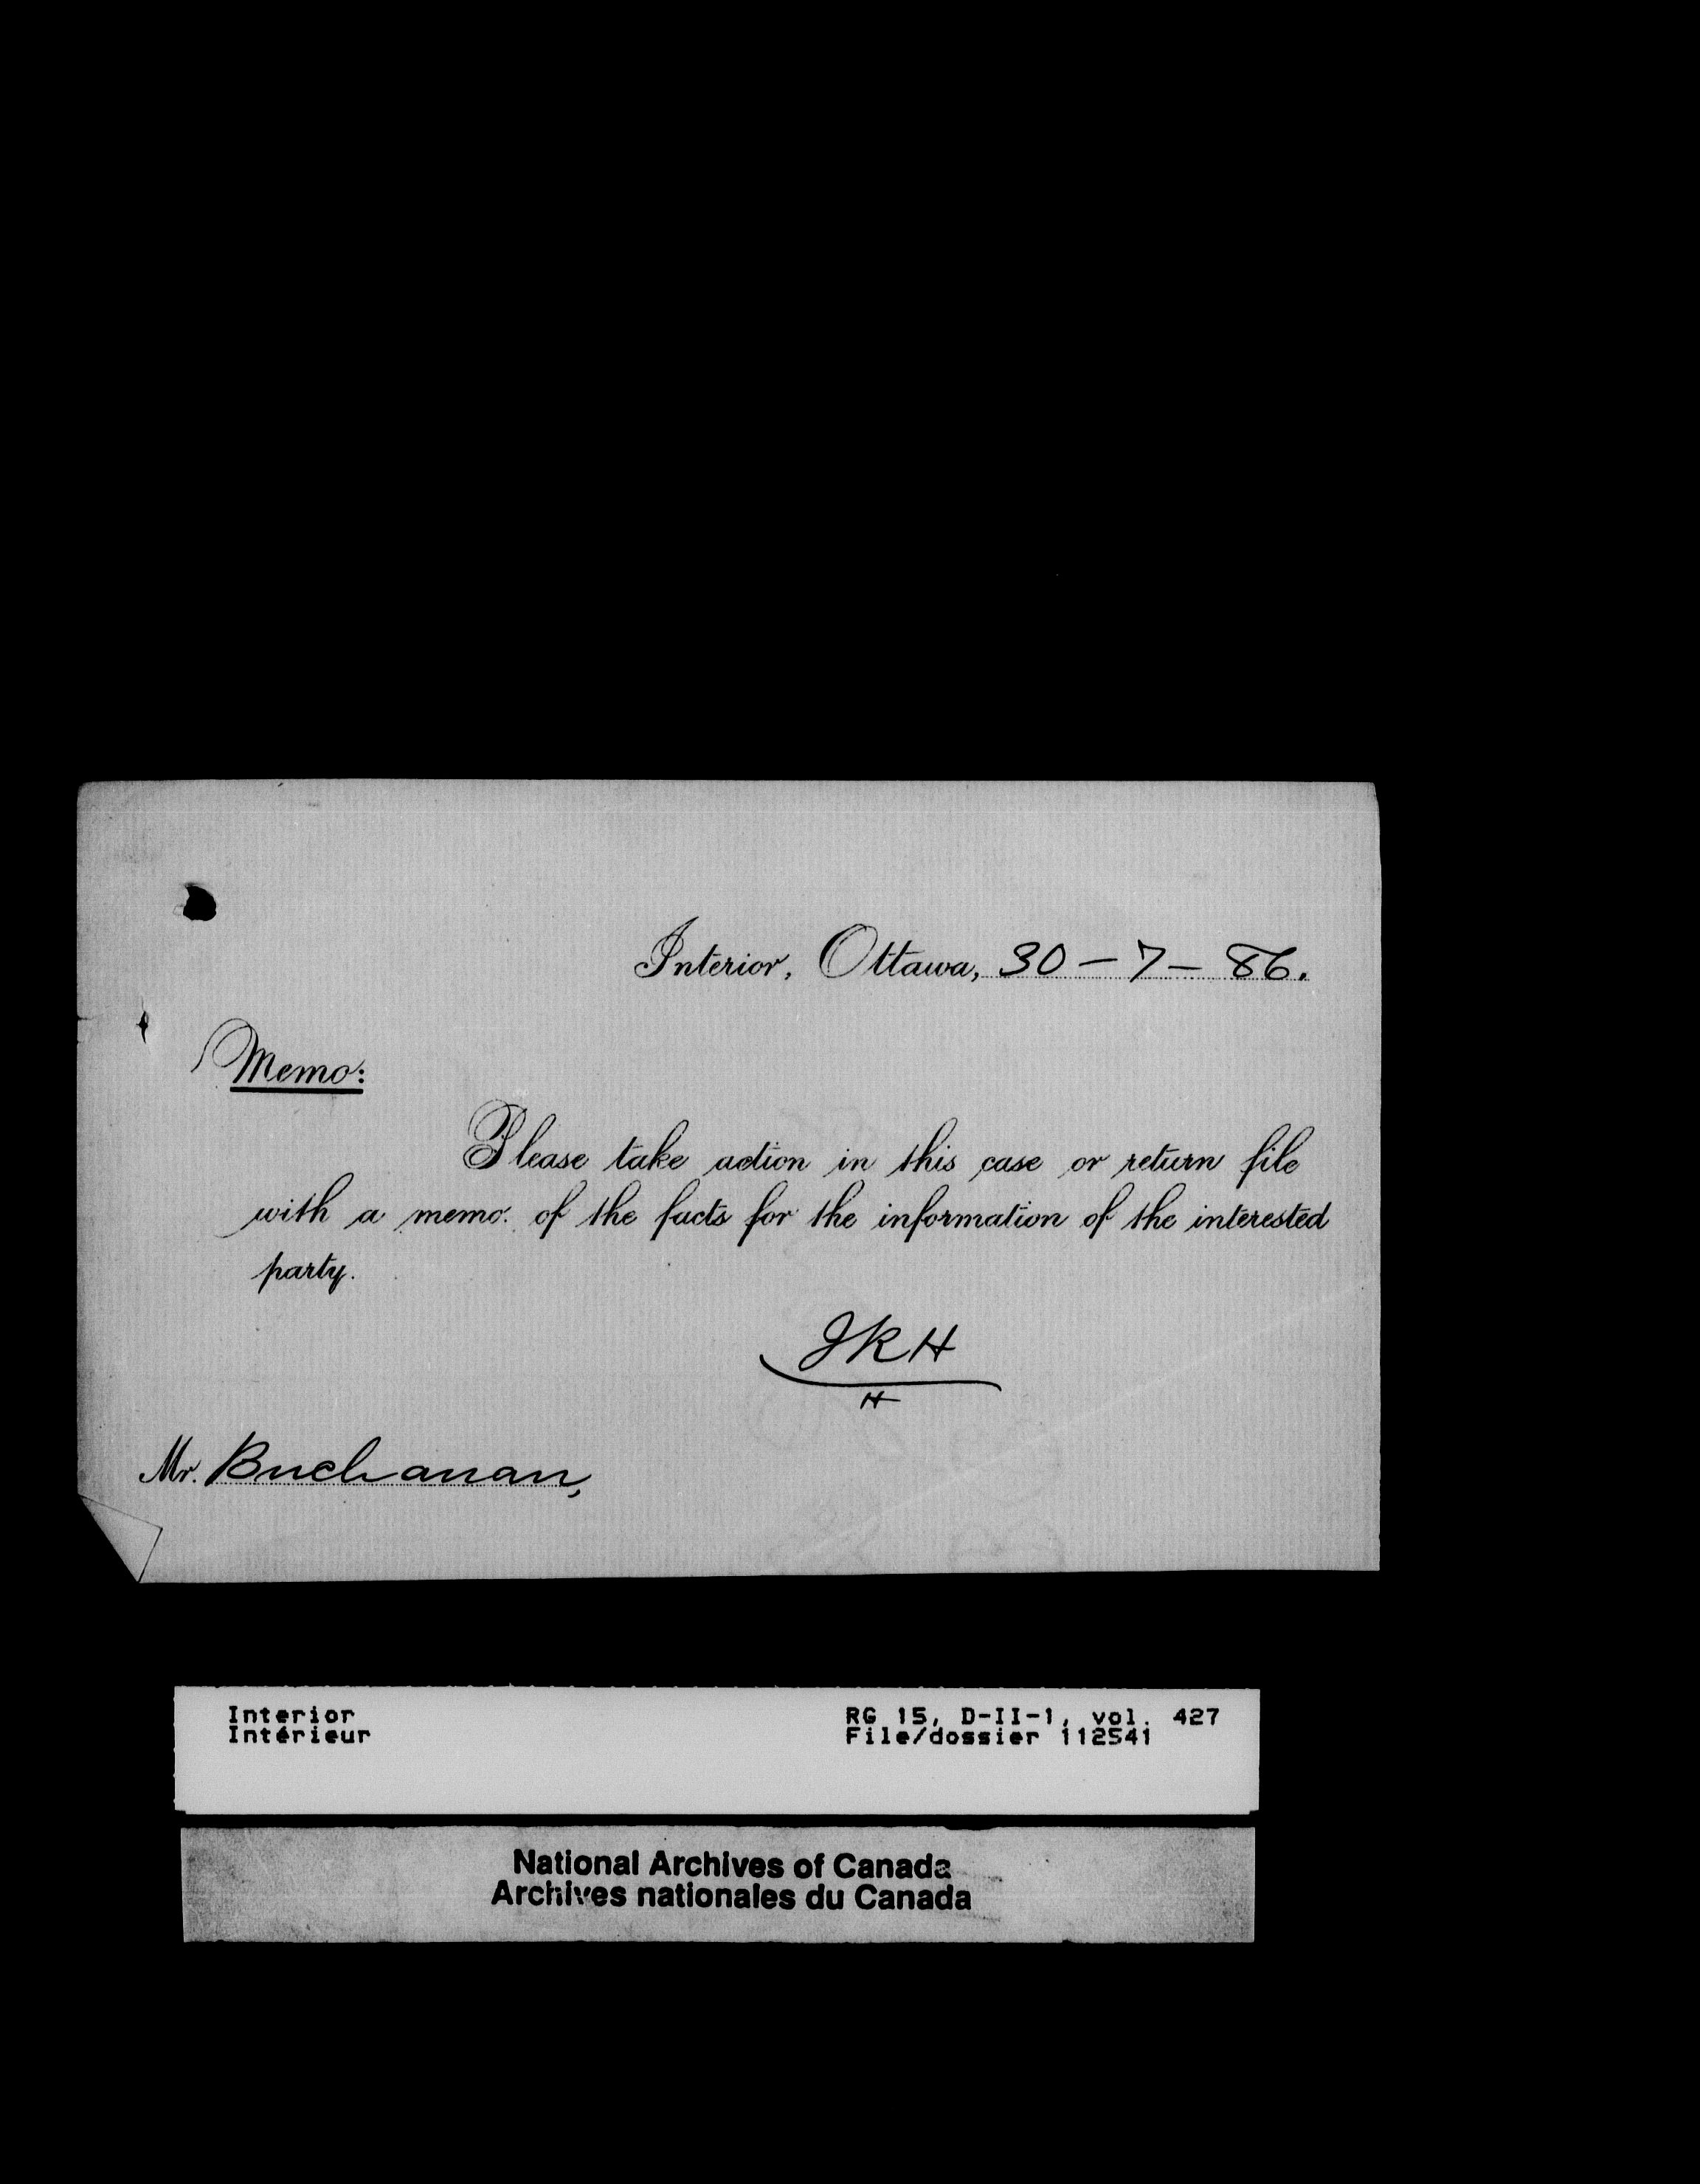 Interior, Ottawa, 30 – 7 – 86.
Memo:
Please take action in this case or return file
with a memo. of the facts for the information of the interested
party.
JRH
H
Mr. Buchanan,
Interior RG 15, D-II-1, vol. 427
Intérieur File/dossier 112541
National Archives of Canada
Archives nationales du Canada